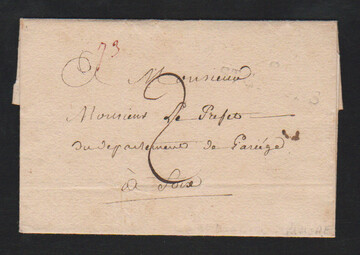 23
Monsieur
2
Monsieur Le Prefet
du departement de Lariége
à Foix